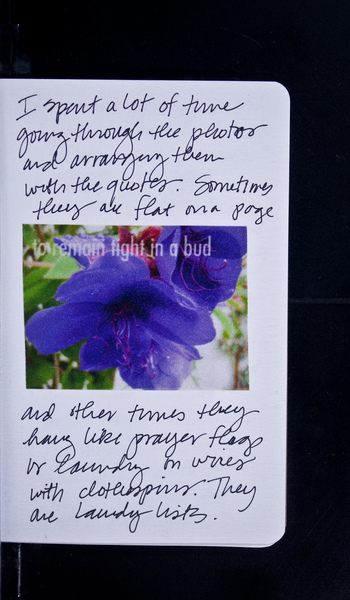 I spent a lot of time
going through the photos
and arranging them
with the quotes. Sometimes
they are flat on a page
to remain tight in a bud
and other times they
hang like prayer flags
or laundry on wires
with clothespins. They
are laundy lists.